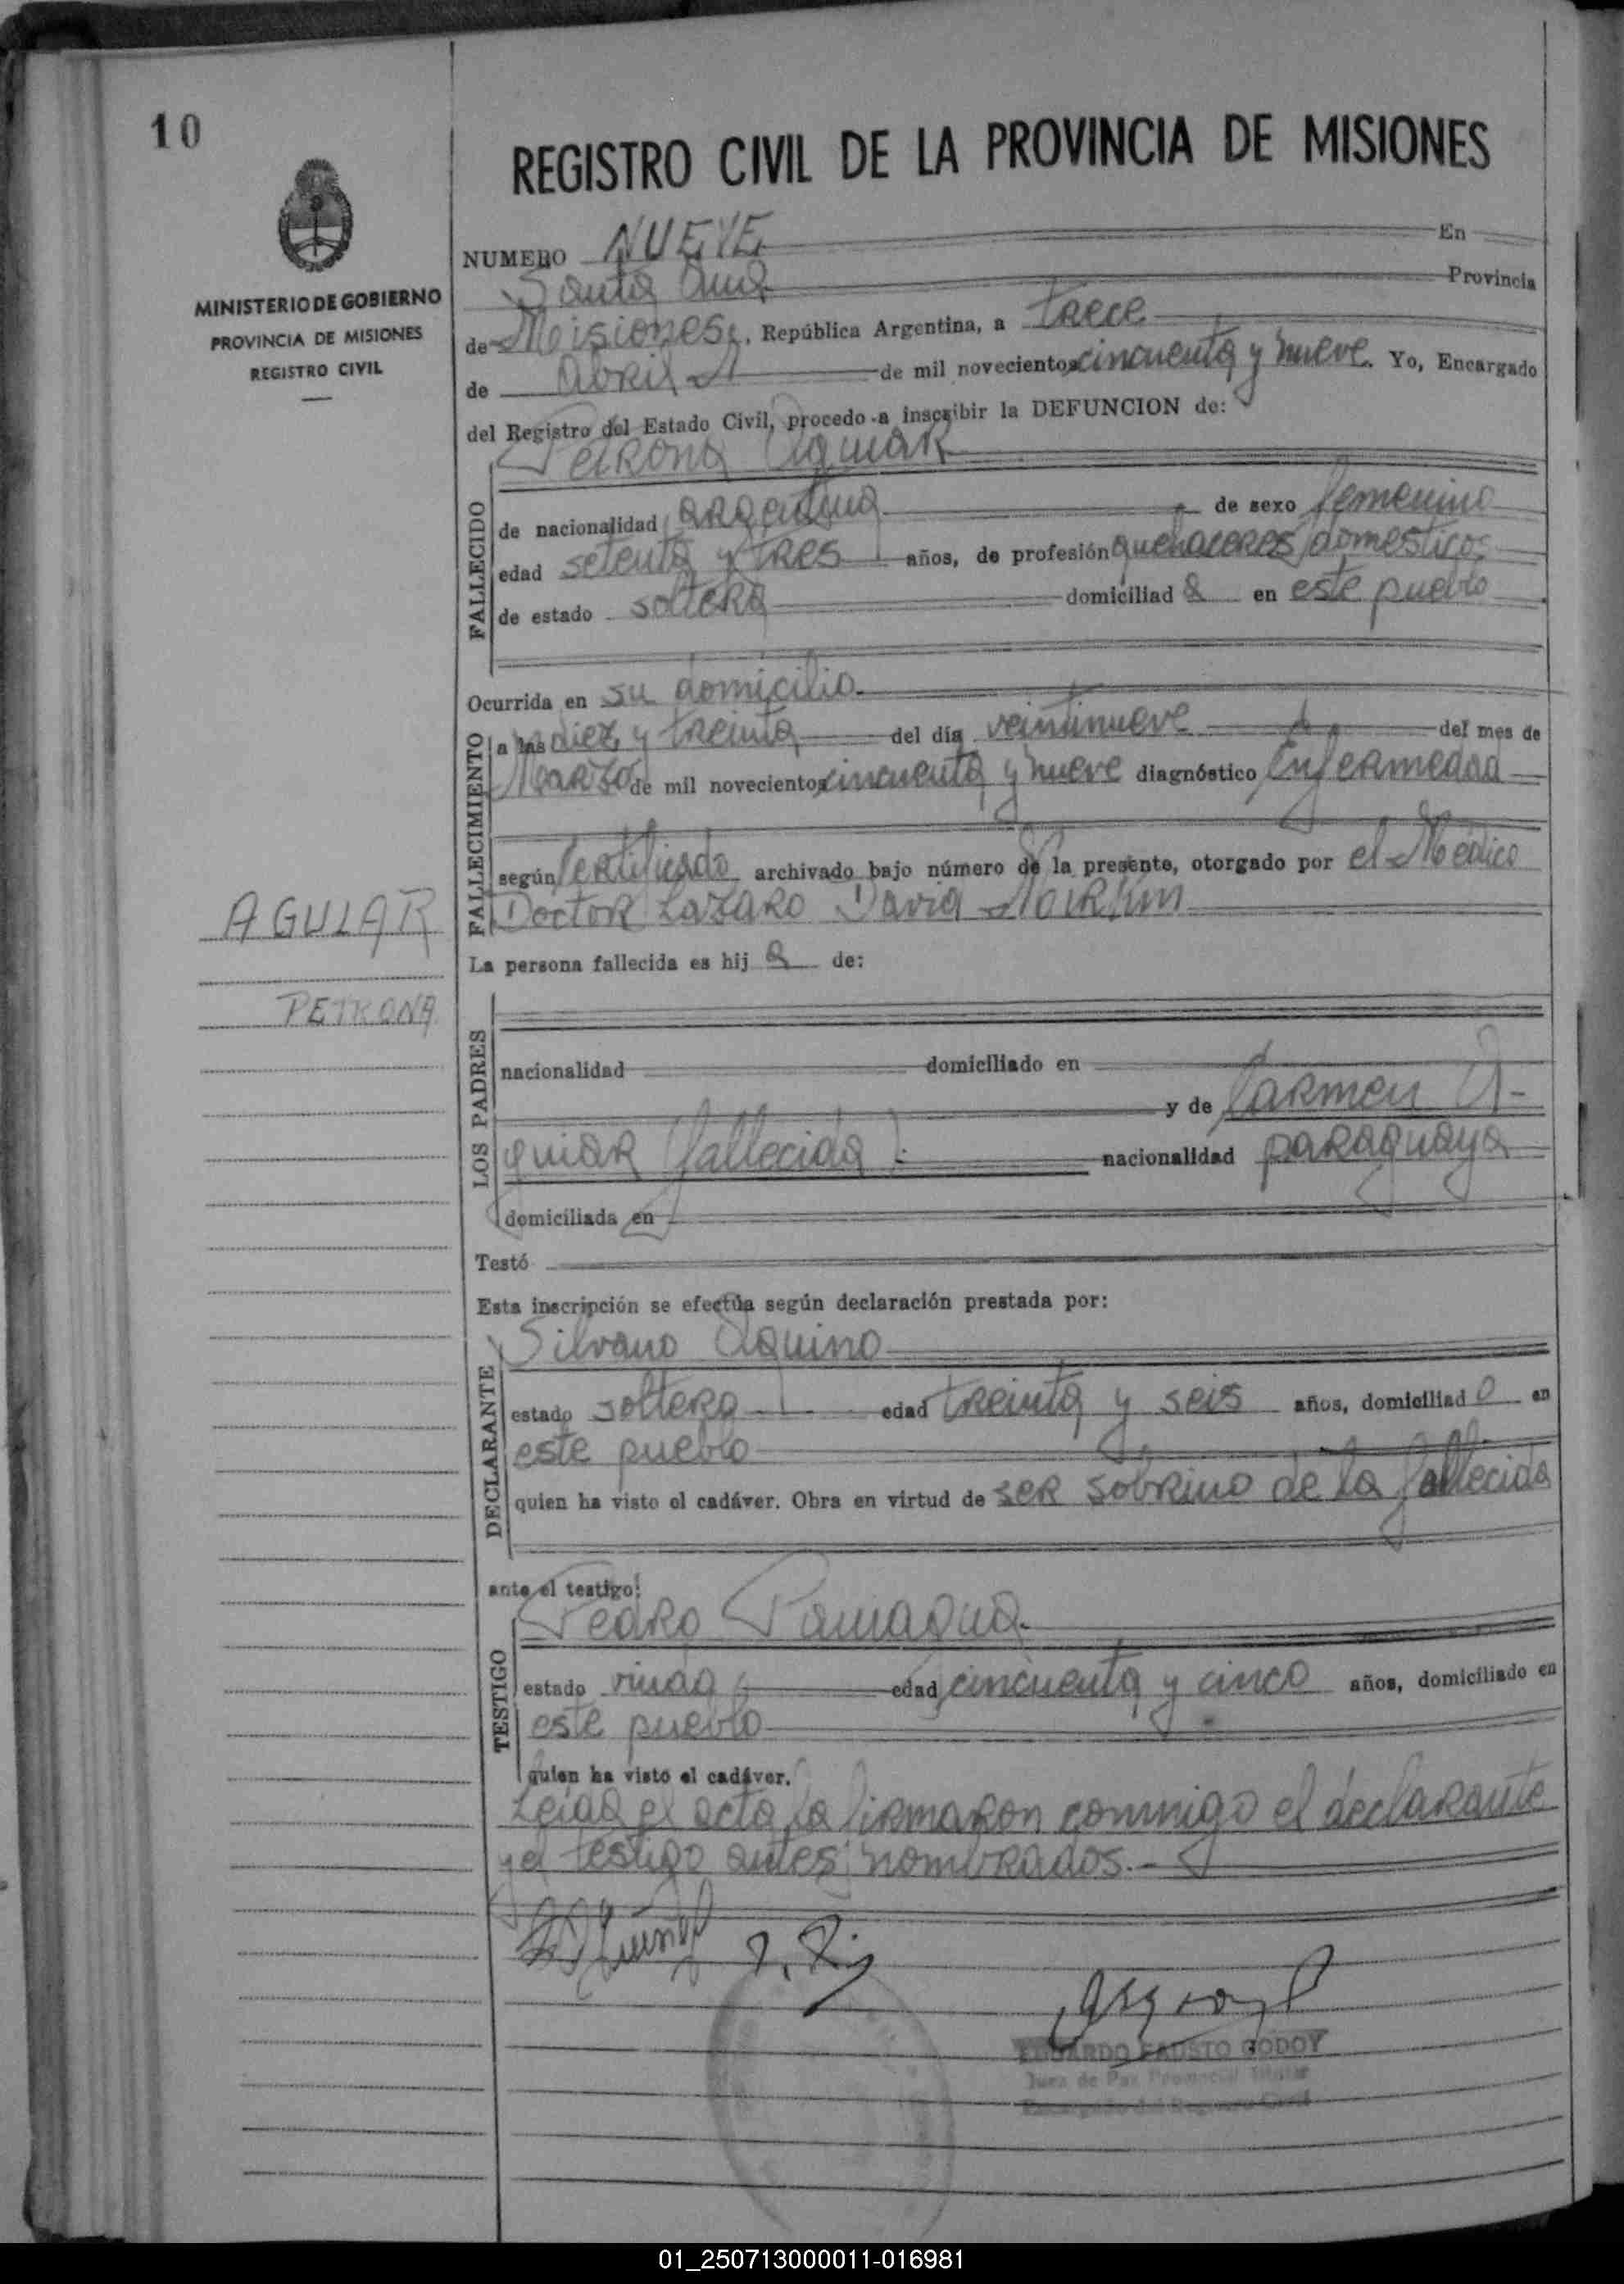 10
REGISTRO CIVIL DE LA PROVINCIA DE MISIONES
MINISTERIO DE GOBIERNO
PROVINCIA DE MISIONES
REGISTRO CIVIL
NUMERO NUEVE En
Santa Ana Provincia
de Misiones, República Argentina, a trece
de Abril de mil novecientos cincuenta y nueve. Yo, Encargado
del Registro del Estado Civil, procedo a inscribir la DEFUNCION de:
Petrona Aguiar
FALLECIDO
de nacionalidad argentina de sexo femenino
edad setenta y tres años, de profesión quehaceres domesticos
de estado soltera domiciliad a en este pueblo
Ocurrida en su domicilio
FALLECIMIENTO
a las diez y treinta del día veintinueve del mes de
Marzo de mil novecientos cincuenta y nueve diagnóstico Enfermedad
según Certificado archivado bajo número de la presente, otorgado por el Médico
Doctor Lazaro David
AGUIAR
PETRONA
La persona fallecida es hij a de:
LOS PADRES
nacionalidad domiciliado en
y de Carmen A-
guiar (fallecida) nacionalidad paraguaya
domiciliada en
Testó
Esta inscripción se efectúa según declaración prestada por:
Silvano Aquino
DECLARANTE
estado soltero edad treinta y seis años, domiciliad o en
este pueblo
quien ha visto el cadáver. Obra en virtud de ser sobrino de la fallecida
ante el testigo:
Pedro
TESTIGO
estado viudo edad cincuenta y cinco años, domiciliado en
este pueblo
quien ha visto el cadáver.
Leida el acta la firmaron conmigo el declarante
y el testigo antes nombrados.-
EDUARDO FAUSTO GODOY
Juez de Paz Provincial Titular
Encargado del Registro Civil
01_250713000011-016981